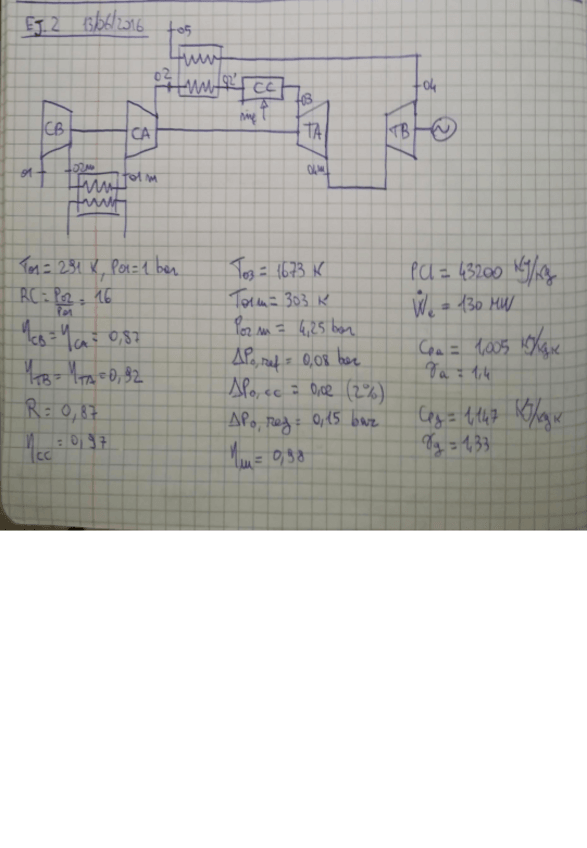 EJ. 2 13/06/2016
05
02 02' CC 04
03
CB CA ṁf TA TB
01 02m 01m 04m
T01 = 291 K, P01 = 1 bar
RC = P02/P01 = 16
ηCB = ηCA = 0,87
ηTB = ηTA = 0,92
R = 0,87
ηcc = 0,97
T03 = 1673 K
T01m = 303 K
P02m = 4,25 bar
ΔP0,ref = 0,08 bar
ΔP0,cc = 0,02 (2%)
ΔP0,reg = 0,15 bar
ηm = 0,98
PCI = 43200 KJ/Kg
Ẇe = 130 MW
Cpa = 1,005 KJ/KgK
γa = 1,4
Cpg = 1,147 KJ/KgK
γg = 1,33